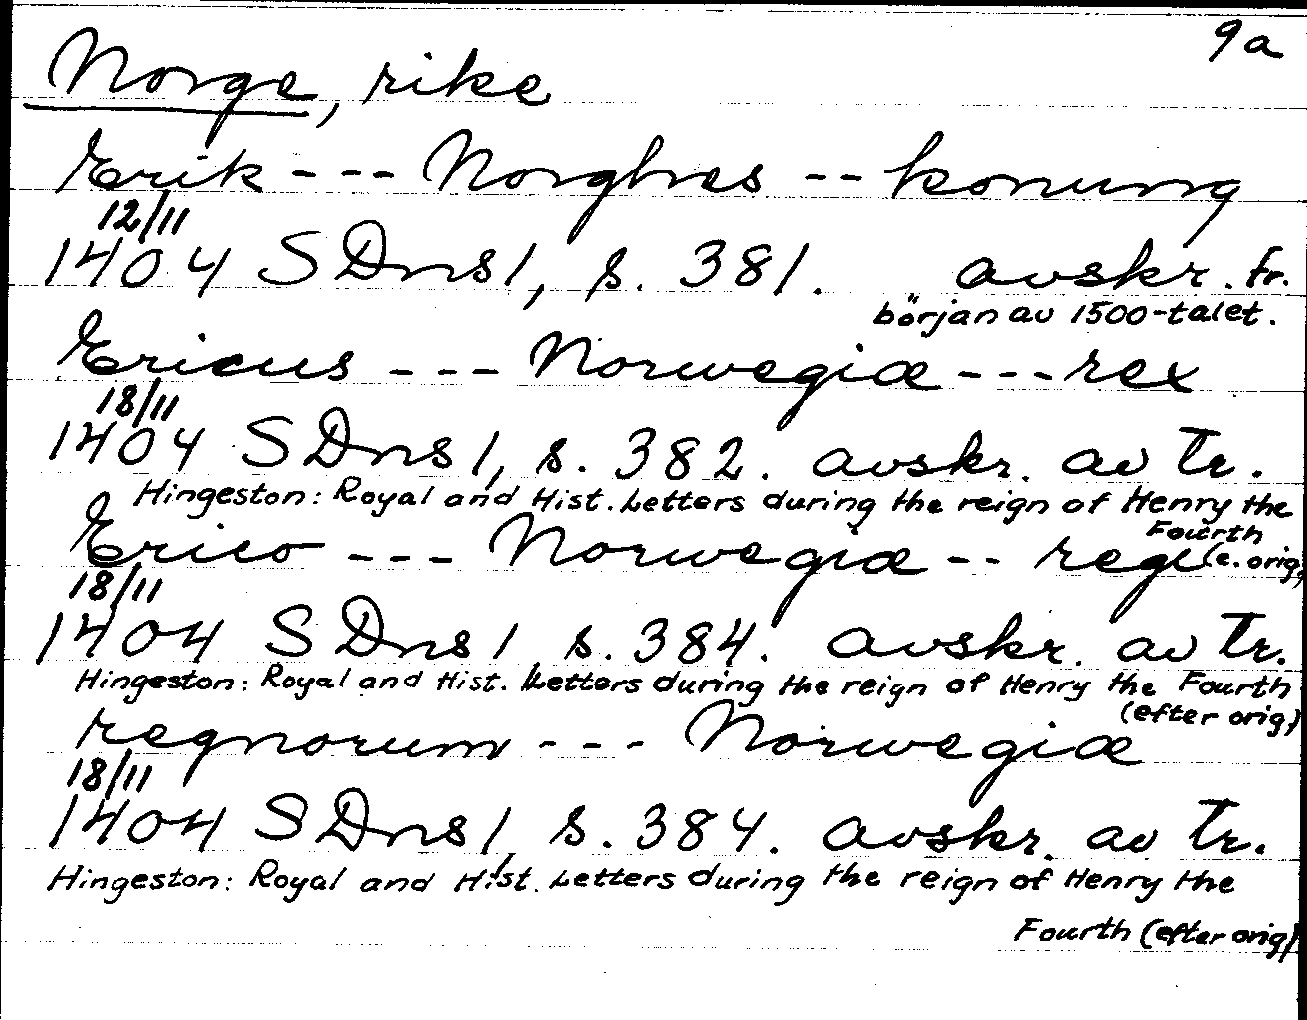 9a
Norge, rike
Erik --- Norghes -- konung
12/11
1404 SDns1, s. 381. avskr. fr.
början av 1500-talet.
Ericus --- Norwegiæ --- rex
18/11
1404 SDns1, s. 382. avskr. av Tr.
Hingeston: Royal and Hist. Letters during the reign of Henry the
Fourth
Erico --- Norwegiæ -- regi (e. orig)
18/11
1404 SDns1 s. 384. avskr. av Tr.
Hingeston: Royal and Hist. Letters during the reign of Henry the Fourth
(efter orig)
regnorum --- Norwegiæ
18/11
1404 SDns1, s. 384. avskr. av Tr.
Hingeston: Royal and Hist. Letters during the reign of Henry the
Fourth (efter orig)